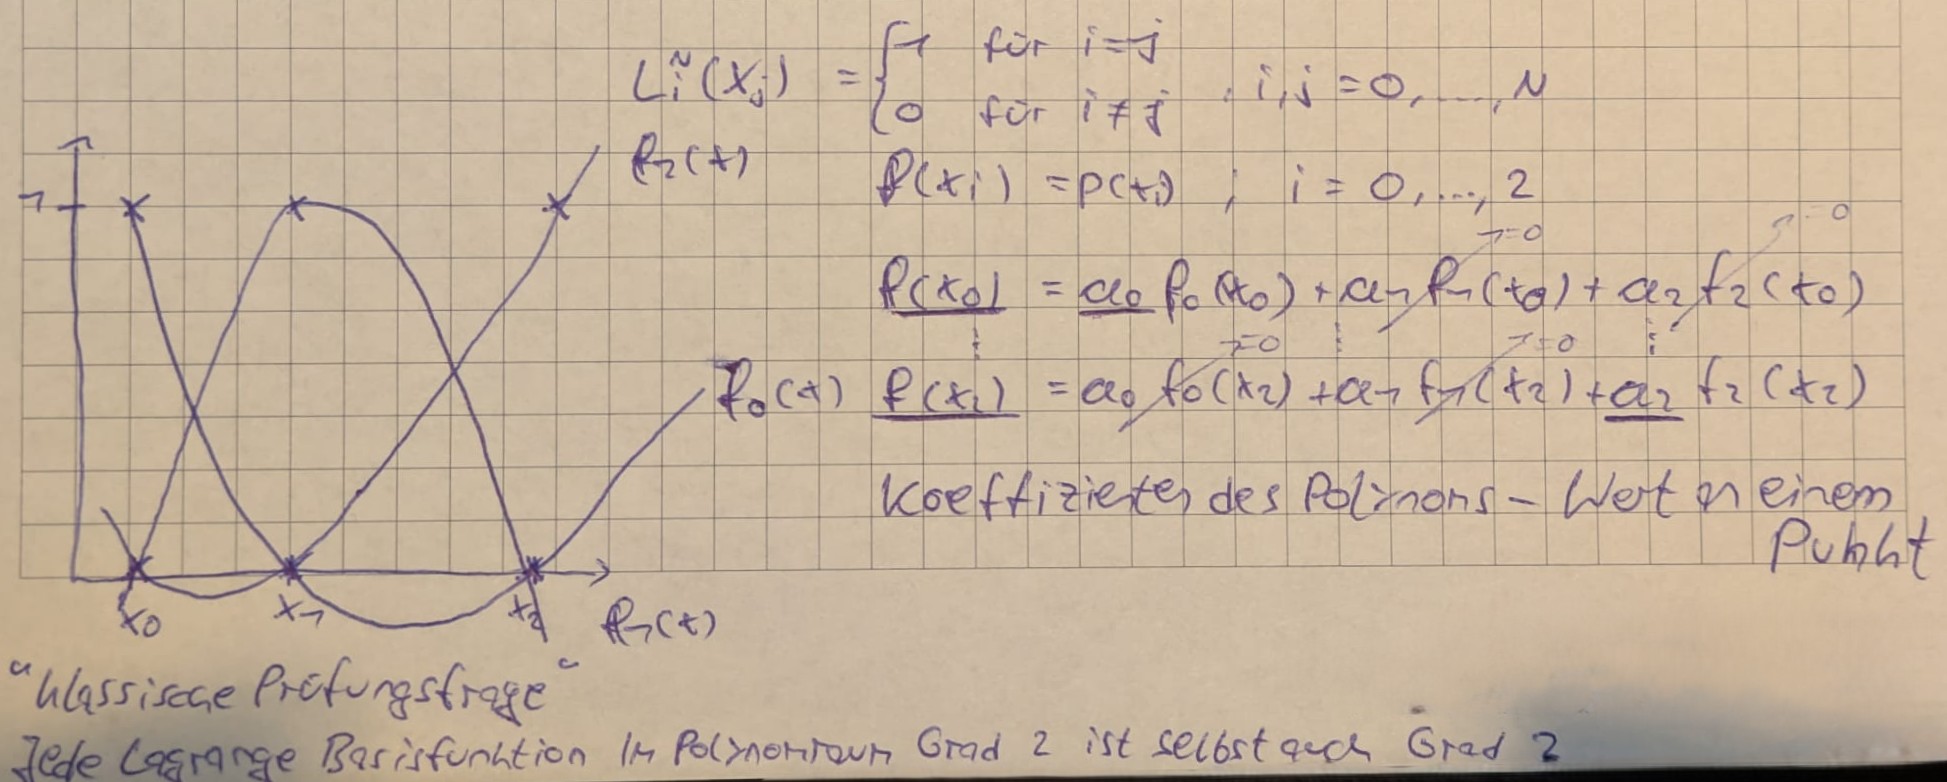 L_i^N(x_j) = { 1 für i=j
0 für i≠j , i,j = 0,...,N
f_2(x)
f(x_i) = p(x_i) ; i = 0,...,2
1
→=0 →=0
f(x_0) = a_0 f_0(x_0) + a_1 f_1(x_0) + a_2 f_2(x_0)
→=0 →=0
f_0(x) f(x_2) = a_0 f_0(x_2) + a_1 f_1(x_2) + a_2 f_2(x_2)
Koeffizienten des Polynoms – Wert an einem
Punkt
x_0 x_1 x_2 f_1(x)
"klassische Prüfungsfrage"
Jede Lagrange Basisfunktion im Polynomraum Grad 2 ist selbst auch Grad 2